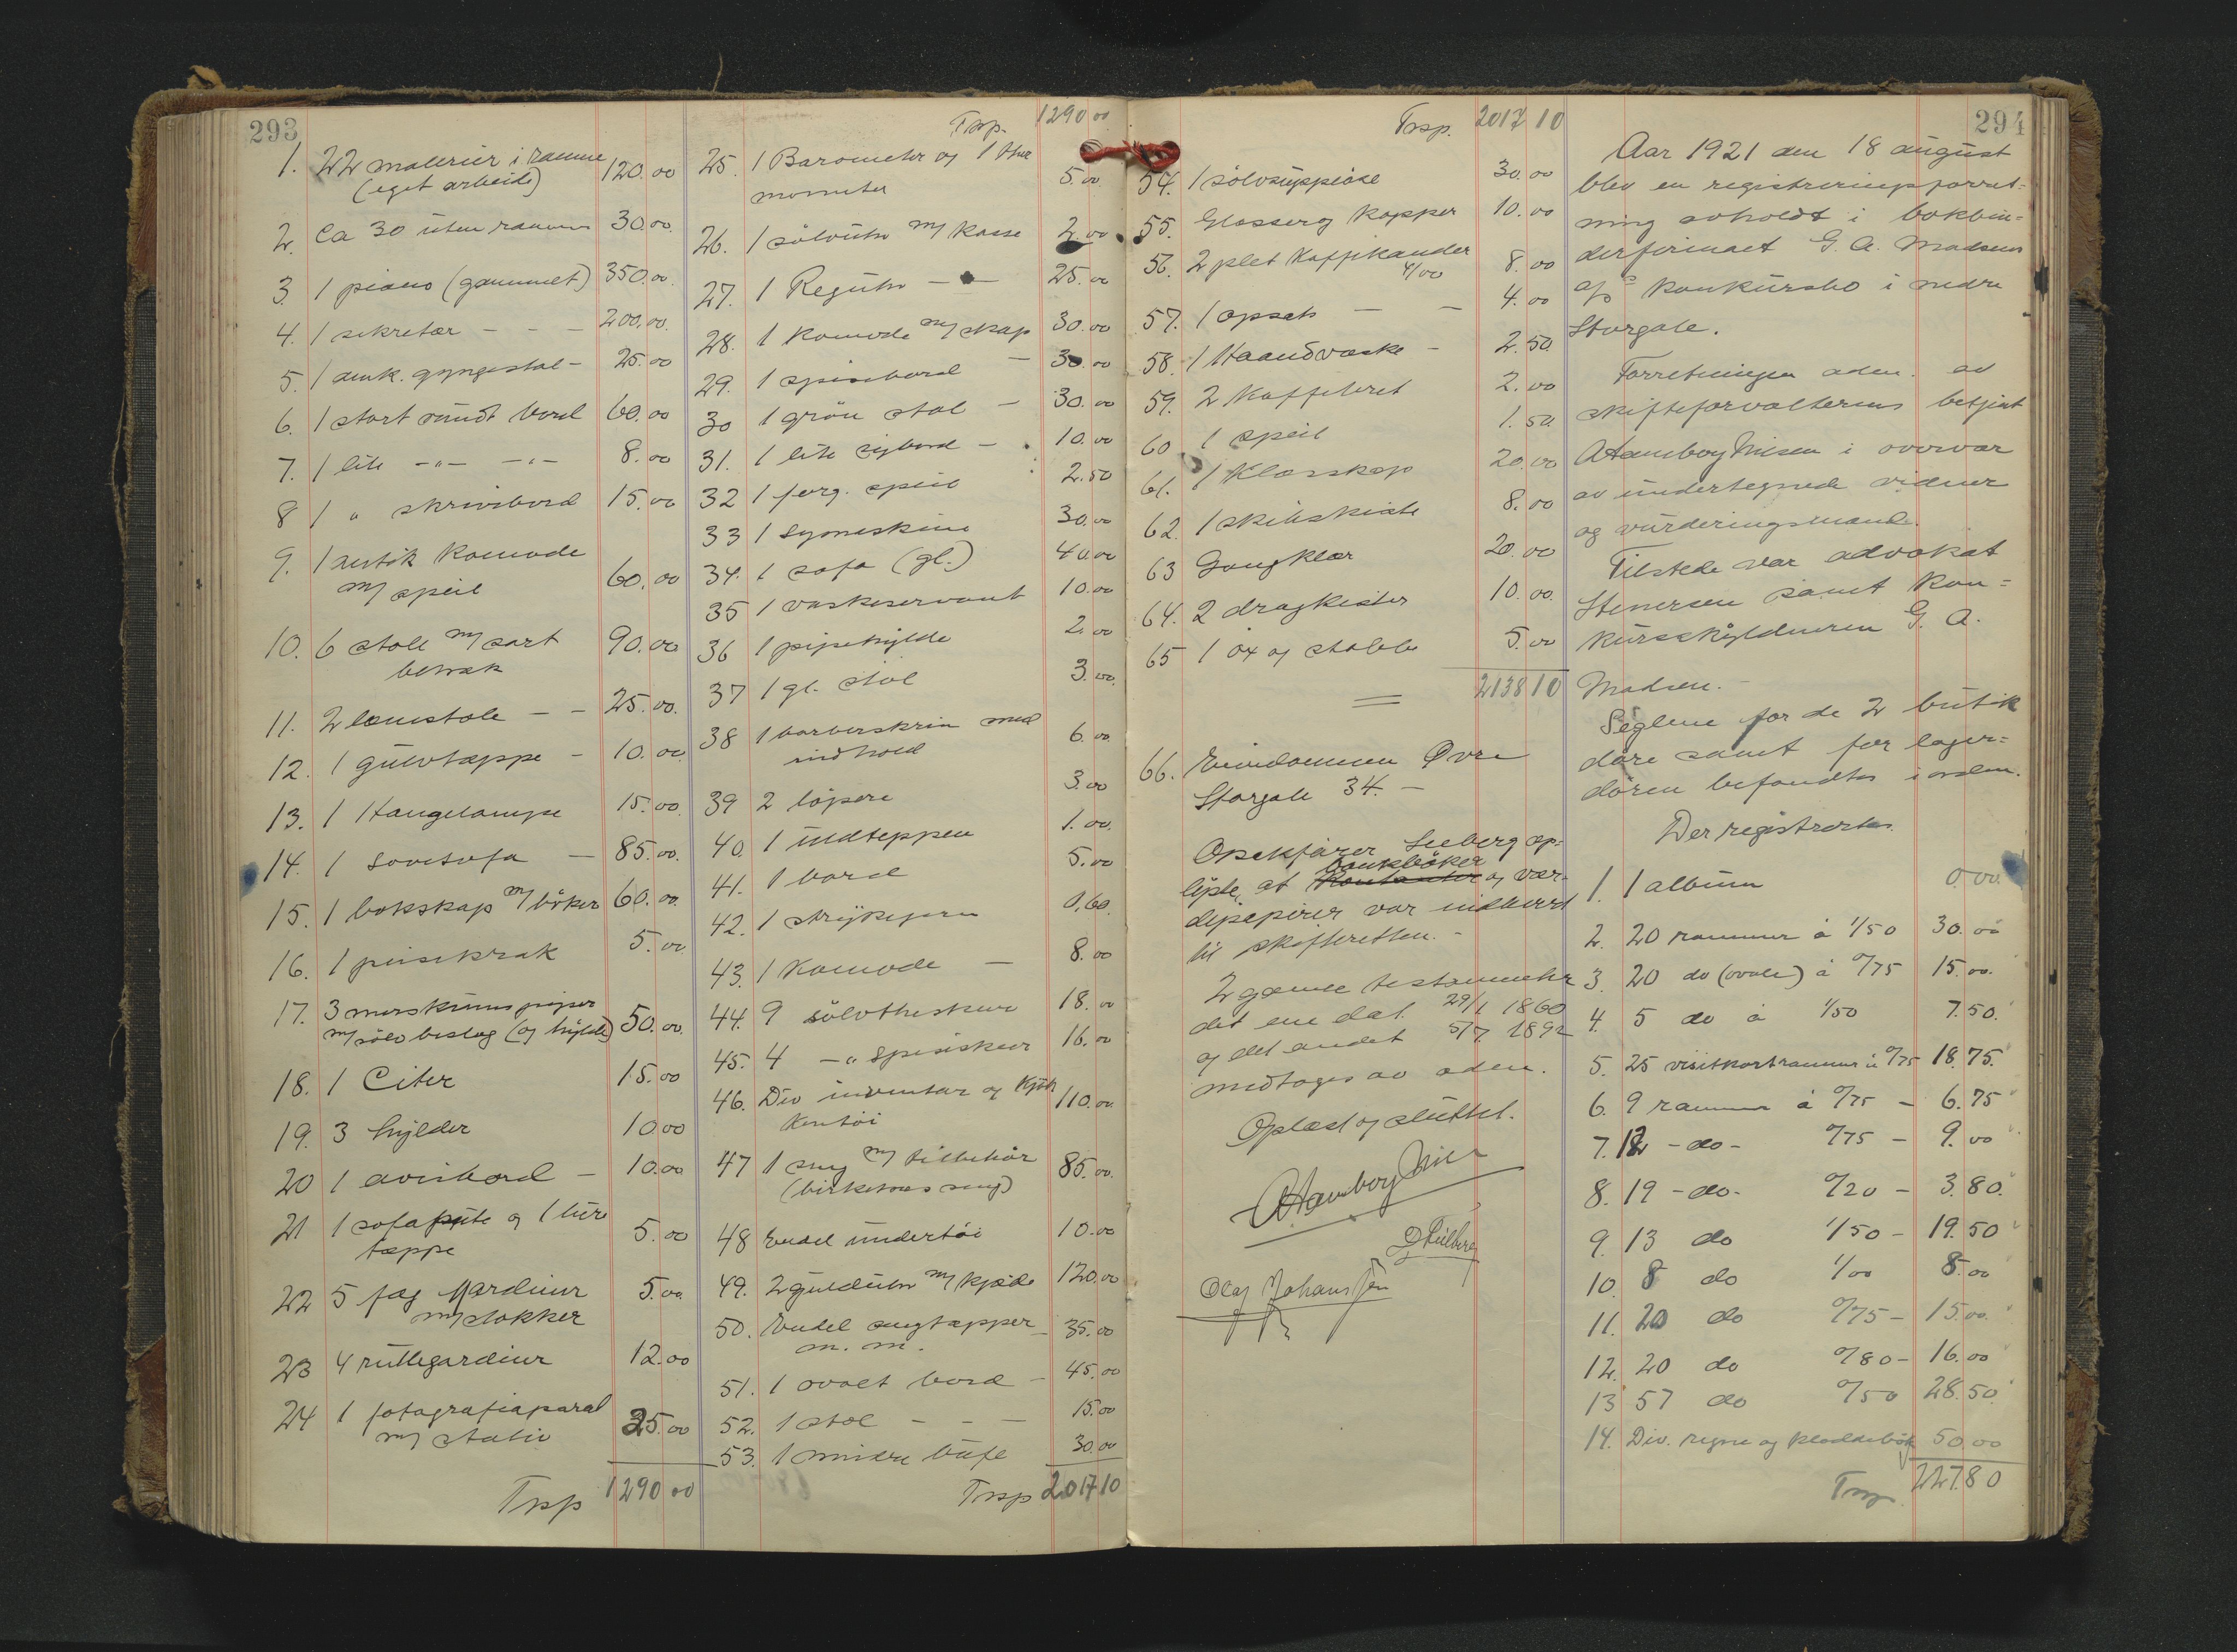 293
1. 22 malerier i ramme 120.00
(eget arbeide)
2. Ca 30 uten ramme 30.00
3. 1 piano (gammelt) 350.00
4. 1 sekretær - - - 200.00
5. 1 amk. gyngestol - 25.00
6. 1 stort rundt bord 60.00
7. 1 lite -"- -"- 8.00
8 1 " skrivebord 15.00
9. 1 antik komode
m/ speil 60.00
10. 6 stole m/ sort 90.00
betræk
11. 2 lænestole - - 25.00
12. 1 gulvtæppe - 10.00
13. 1 Hangelampe 15.00
14. 1 Sovesofa - 85.00
15. 1 bokskap m/ bøker 60.00
16. 1 peisekrak 5.00
17. 3 merskums piper
m/ sølv beslag (og hylde) 50.00
18. 1 Citer 15.00
19. 3 hylder 10.00
20 1 avisbord - 10.00
21 1 sofapute og 1 lite
tæppe 5.00
22 5 fag gardiner 5.00
m/ stokker
23 4 rullegardiner 12.00
24 1 fotografiaparat
m/ stativ 35.00
Trsp 1290 00
Trsp. 1290 00
25. 1 Barometer og 1 ther
mometer 5.00
26. 1 sølvuhr m/ kasse 2.00
27. 1 Reguhr - - 25.00
28. 1 komode m/ skap 30.00
29. 1 spisebord - 30.00
30 1 grøn stol - 30.00
31. 1 lite sybord - 10.00
32 1 forg. speil 2.50
33 1 symaskine 30.00
34. 1 sofa (gl.) 40.00
35 1 vaskeservant 10.00
36 1 pipehylde 2.00
37 1 gl. stol 3.00
38 1 barberskrin med
indhold 6.00
39 2 løpere 3.00
40. 1 uldteppen 1.00
41. 1 bord 5.00
42. 1 strykejern 0,60
43. 1 Komode - 8.00
44. 9 sølvtheskeer 18.00
45. 4 -"- Spiseskeer 16.00
46. Div inventar og kjøk
kentøi 110.00
47 1 seng m/ tilbehør 85.00
(birketræs seng)
48 Endel undertøi 10.00
49. 2 gulduhr m/ kjæde 120.00
50. Endel sengtæpper - 35.00
m. m.
51. 1 ovalt bord - 45.00
52. 1 stol - - - 15.00
53. 1 mindre bufe 30.00
Trsp 2017 10
Trsp. 2017 10
54. 1 sølvsuppeøse 30.00
55. Glasserog kopper 10.00
56. 2 plet kaffikander 8.00
4/00
57. 1 opsats - - 4.00
58. 1 Haandvæske - 2.50
59. 2 Kaffebret 2.00
60 1 speil 1.50
61. 1 Klæsskap 20.00
62. 1 skibskiste 8.00
63 Gangklær 20.00
64. 2 dragkister 10.00
65 1 øx og stabbe 5.00
2138 10
66. Eiendommen Øvre
Storgate 34. -
Opsekfører Seeberg op=
bankbøker
lyste, at kontanter og vær-
dipapirer var indlevert
til skifteretten. -
2 gamle testamenter
det ene dat. 29/1 1860
og det andet 5/7 1892
medtages av adm.
Oplæst og sluttet.
A Hamborg Nilsen
Olaf Johanssen
294
Aar 1921 den 18 august
blev en registreringsforret=
ning avholdt i bokbin=
derfirmaet G. A. Madsens
Konkursbo i nedre
Storgate.
Forretningen adm. av
skifteforvalterens betjent
A Hamborg Nilsen i overvær
av undertegnede vidner
og vurderingsmænd.
Tilstede var advokat
Stenersen samt kon=
kursskyldneren G. A.
Madsen. -
Seglene for de 2 butik
døre samt for lager=
døren befandtes i orden.
Der registrertes.
1. 1 album 0.00
2. 20 rammer à 1/50 30.00
3. 20 do (ovale) à 0/75 15.00
4. 5 do à 1/50 7.50
5. 25 visitkortrammer à 0/75 18.75
6. 9 rammer à 0/75 - 6.75
7. 12 -do- 0/75 - 9.00
8. 19 -do- 0/20 - 3.80
9. 13 do 1/50 - 19.50
10. 8 do 1/00 8.00
11. 20 do 0/75 - 15.00
12. 20 do 0/80 - 16.00
13 57 do 0/50 28.50
14. Div. regne og kladdebøk 50.00
Trsp. 227.80